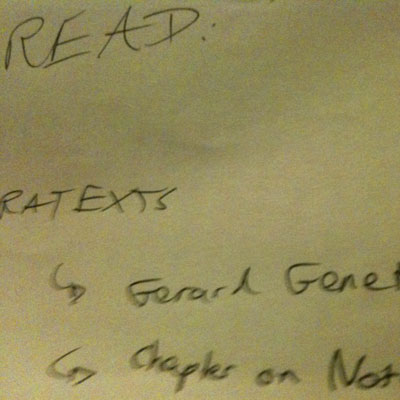 READ:
RATEXTS
↳ Gerard Genet
↳ Chapter on Not